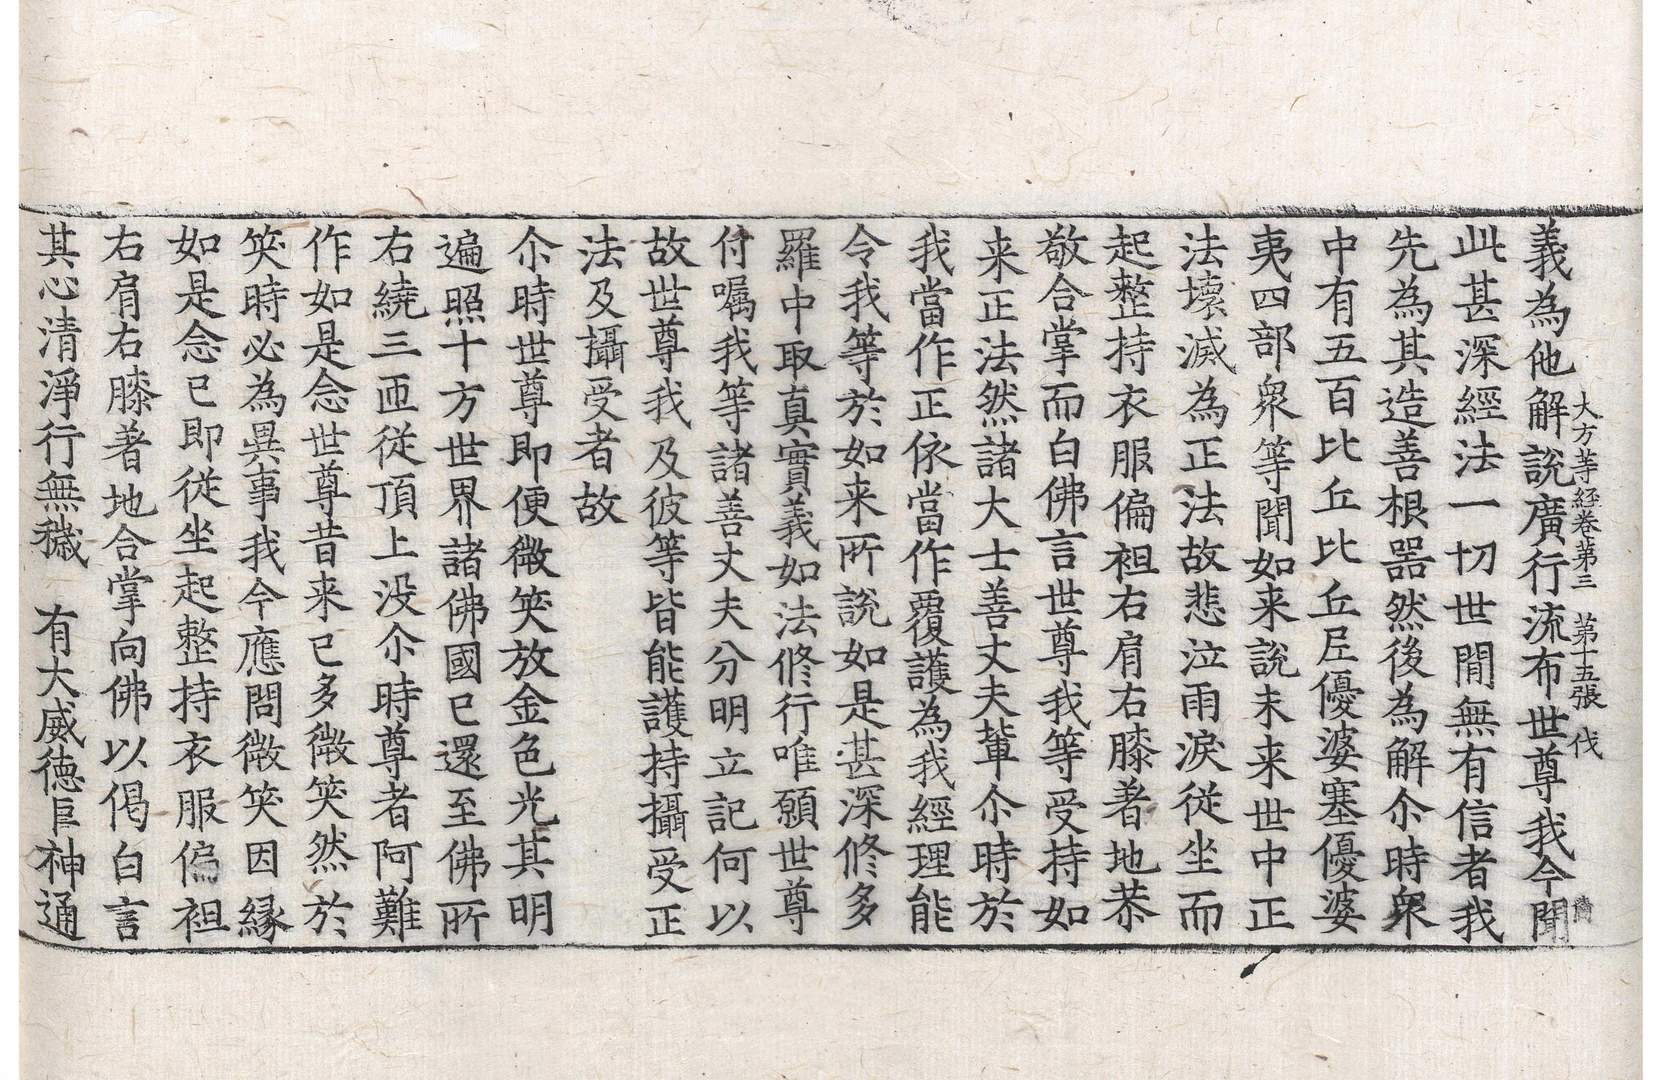 義為他解說廣行流布世尊我今聞
大方等経卷第三 第十五張 伐
此甚深經法一切世間無有信者我
先為其造善根器然後為解尒時衆
中有五百比丘比丘尼優婆塞優婆
夷四部衆等聞如来說未来世中正
法壞滅為正法故悲泣雨淚從坐而
起整持衣服偏袒右肩右膝著地恭
敬合掌而白佛言世尊我等受持如
来正法然諸大士善丈夫輩尒時於
我當作正依當作覆護為我經理能
令我等於如来所說如是甚深修多
羅中取真實義如法修行唯願世尊
付囑我等諸善丈夫分明立記何以
故世尊我及彼等皆能護持攝受正
法及攝受者故
尒時世尊即便微笑放金色光其明
遍照十方世界諸佛國已還至佛所
右繞三匝從頂上没尒時尊者阿難
作如是念世尊昔来已多微笑然於
笑時必為異事我今應問微笑因緣
如是念已即從坐起整持衣服偏袒
右肩右膝著地合掌向佛以偈白言
其心清淨行無穢 有大威德巨神通